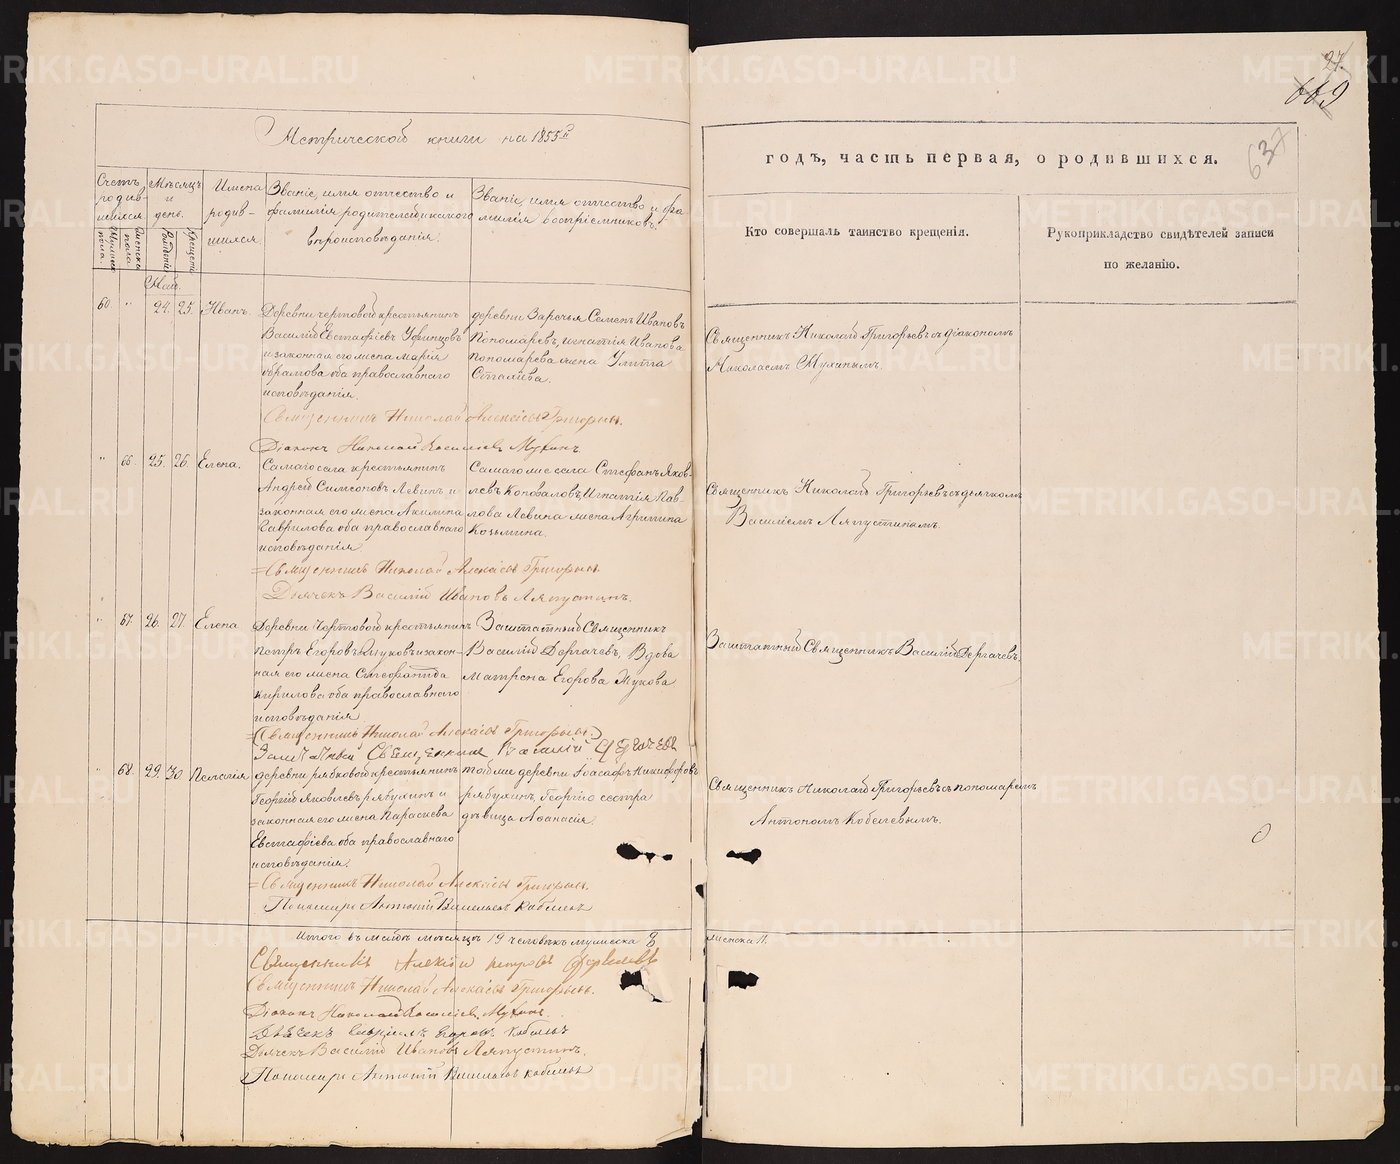 27.
669
637
Метрической книги на 1855й
годъ, часть первая, о родившихся.
Счетъ родив-
шихся.
Мужеска
пола.
Женска
пола.
Мѣсяцъ
и
день.
Рожденія
Крещенія
Имена
родив-
шихся
Званіе, имя отчество и
фамилія родителей и какого
вѣроисповѣданія.
Званіе, имя отчество и фа
милія воспріемниковъ.
Кто совершалъ таинство крещенія.
Рукоприкладство свидѣтелей записи
по желанію.
Май.
60 " 24. 25. Иванъ.
Деревни чертовой крестьянинъ
Василій Евстафіевъ
и законная его жена Марія
оба православнаго
исповѣданія.
деревни Заречья Семенъ Ивановъ
Пономаревъ, игнатія Иванова
пономарева жена Улита
Священникъ Николай Григорьевъ съ діакономъ
Николаемъ Мухинымъ.
Священникъ Николай Алексѣевъ Григорьевъ.
Діаконъ Николай Васильевъ Мухинъ
" 66 25. 26. Елена.
Самаго села крестьянинъ
Андрей Симеоновъ Левинъ и
законная его жена Акилина
Гаврилова оба православнаго
исповѣданія
Самаго же села Стефанъ Яков-
левъ Коноваловъ, Игнатія Пав-
лова Левина жена Агрипина
Козьмина.
Священникъ Николай Григорьевъ съ дьячкомъ
Василіемъ Ляпустинымъ.
Священникъ Николай Алексѣевъ Григорьевъ
Дьячекъ Василій Ивановъ Ляпустинъ.
" 67. 26. 27. Елена
Деревни Чертовой крестьянинъ
петръ Егоровъ Жуковъ и закон-
ная его жена Стефанида
кирилова оба православнаго
исповѣданія
Заштатный Священникъ
Василій Дергачевъ, Вдова
Матрена Егорова Жукова
Заштатный Священникъ Василій Дергачевъ.
Священникъ Николай Алексѣевъ Григорьевъ
Заштатный Священникъ Василій Дергачевъ
" 68. 29. 30 Пелагія
деревни рябковой крестьянинъ
Георгій Яковлевъ рябухинъ и
законная его жена Параскева
Евстафіева оба православнаго
исповѣданія.
той же деревни Іоасафъ Никифоровъ
рябухинъ, Георгію сестра
дѣвица Афанасія.
Священникъ Николай Григорьевъ съ пономаремъ
Антономъ Кобелевымъ.
Священникъ Николай Алексѣевъ Григорьевъ.
Пономарь Антоній Васильевъ Кобелевъ
Итого въ майѣ мѣсяцѣ 19 человѣкъ мужеска 8
женска 11.
Священникъ Алексій петровъ
Священникъ Николай Алексѣевъ Григорьевъ.
Діаконъ Николай Васильевъ Мухинъ.
Дьячекъ Гавріилъ Кобелевъ
Дьячекъ Василій Ивановъ Ляпустинъ.
Пономарь Антоній Васильевъ Кобелевъ
METRIKI.GASO-URAL.RU